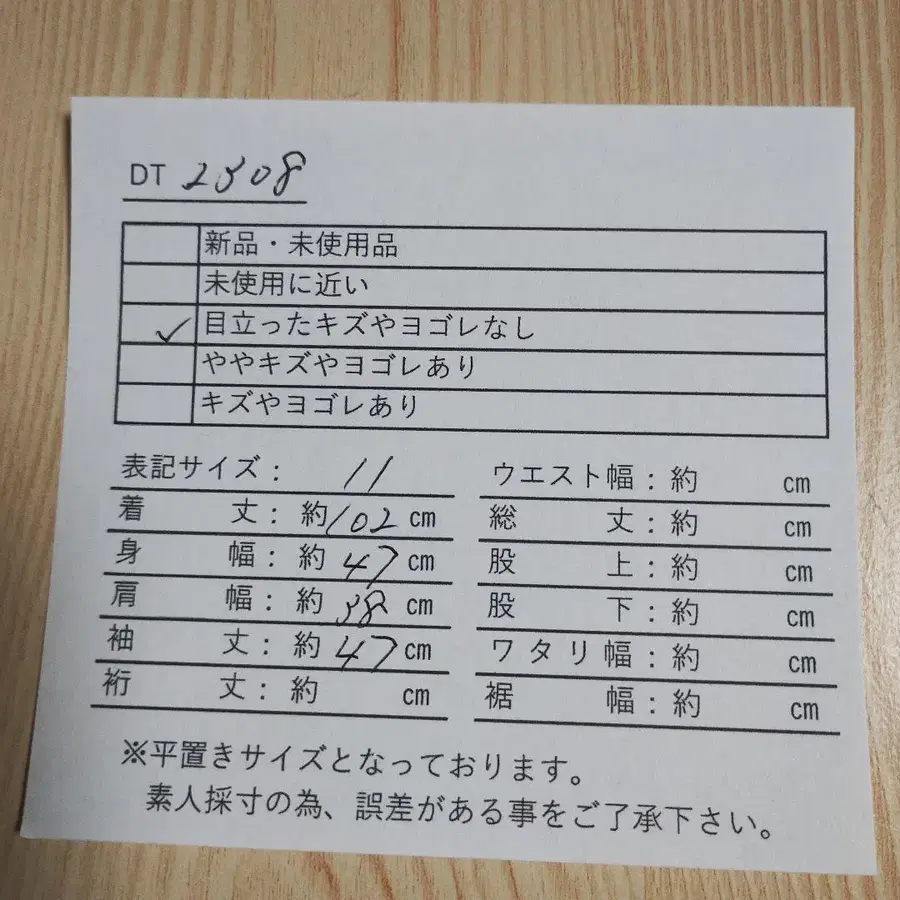 DT 2308
新品・未使用品
未使用に近い
✓ 目立ったキズやヨゴレなし
ややキズやヨゴレあり
キズやヨゴレあり
表記サイズ： 11
着丈：約102cm
身幅：約47cm
肩幅：約38cm
袖丈：約47cm
裄丈：約 cm
ウエスト幅：約 cm
総丈：約 cm
股上：約 cm
股下：約 cm
ワタリ幅：約 cm
裾幅：約 cm
※平置きサイズとなっております。
素人採寸の為、誤差がある事をご了承下さい。